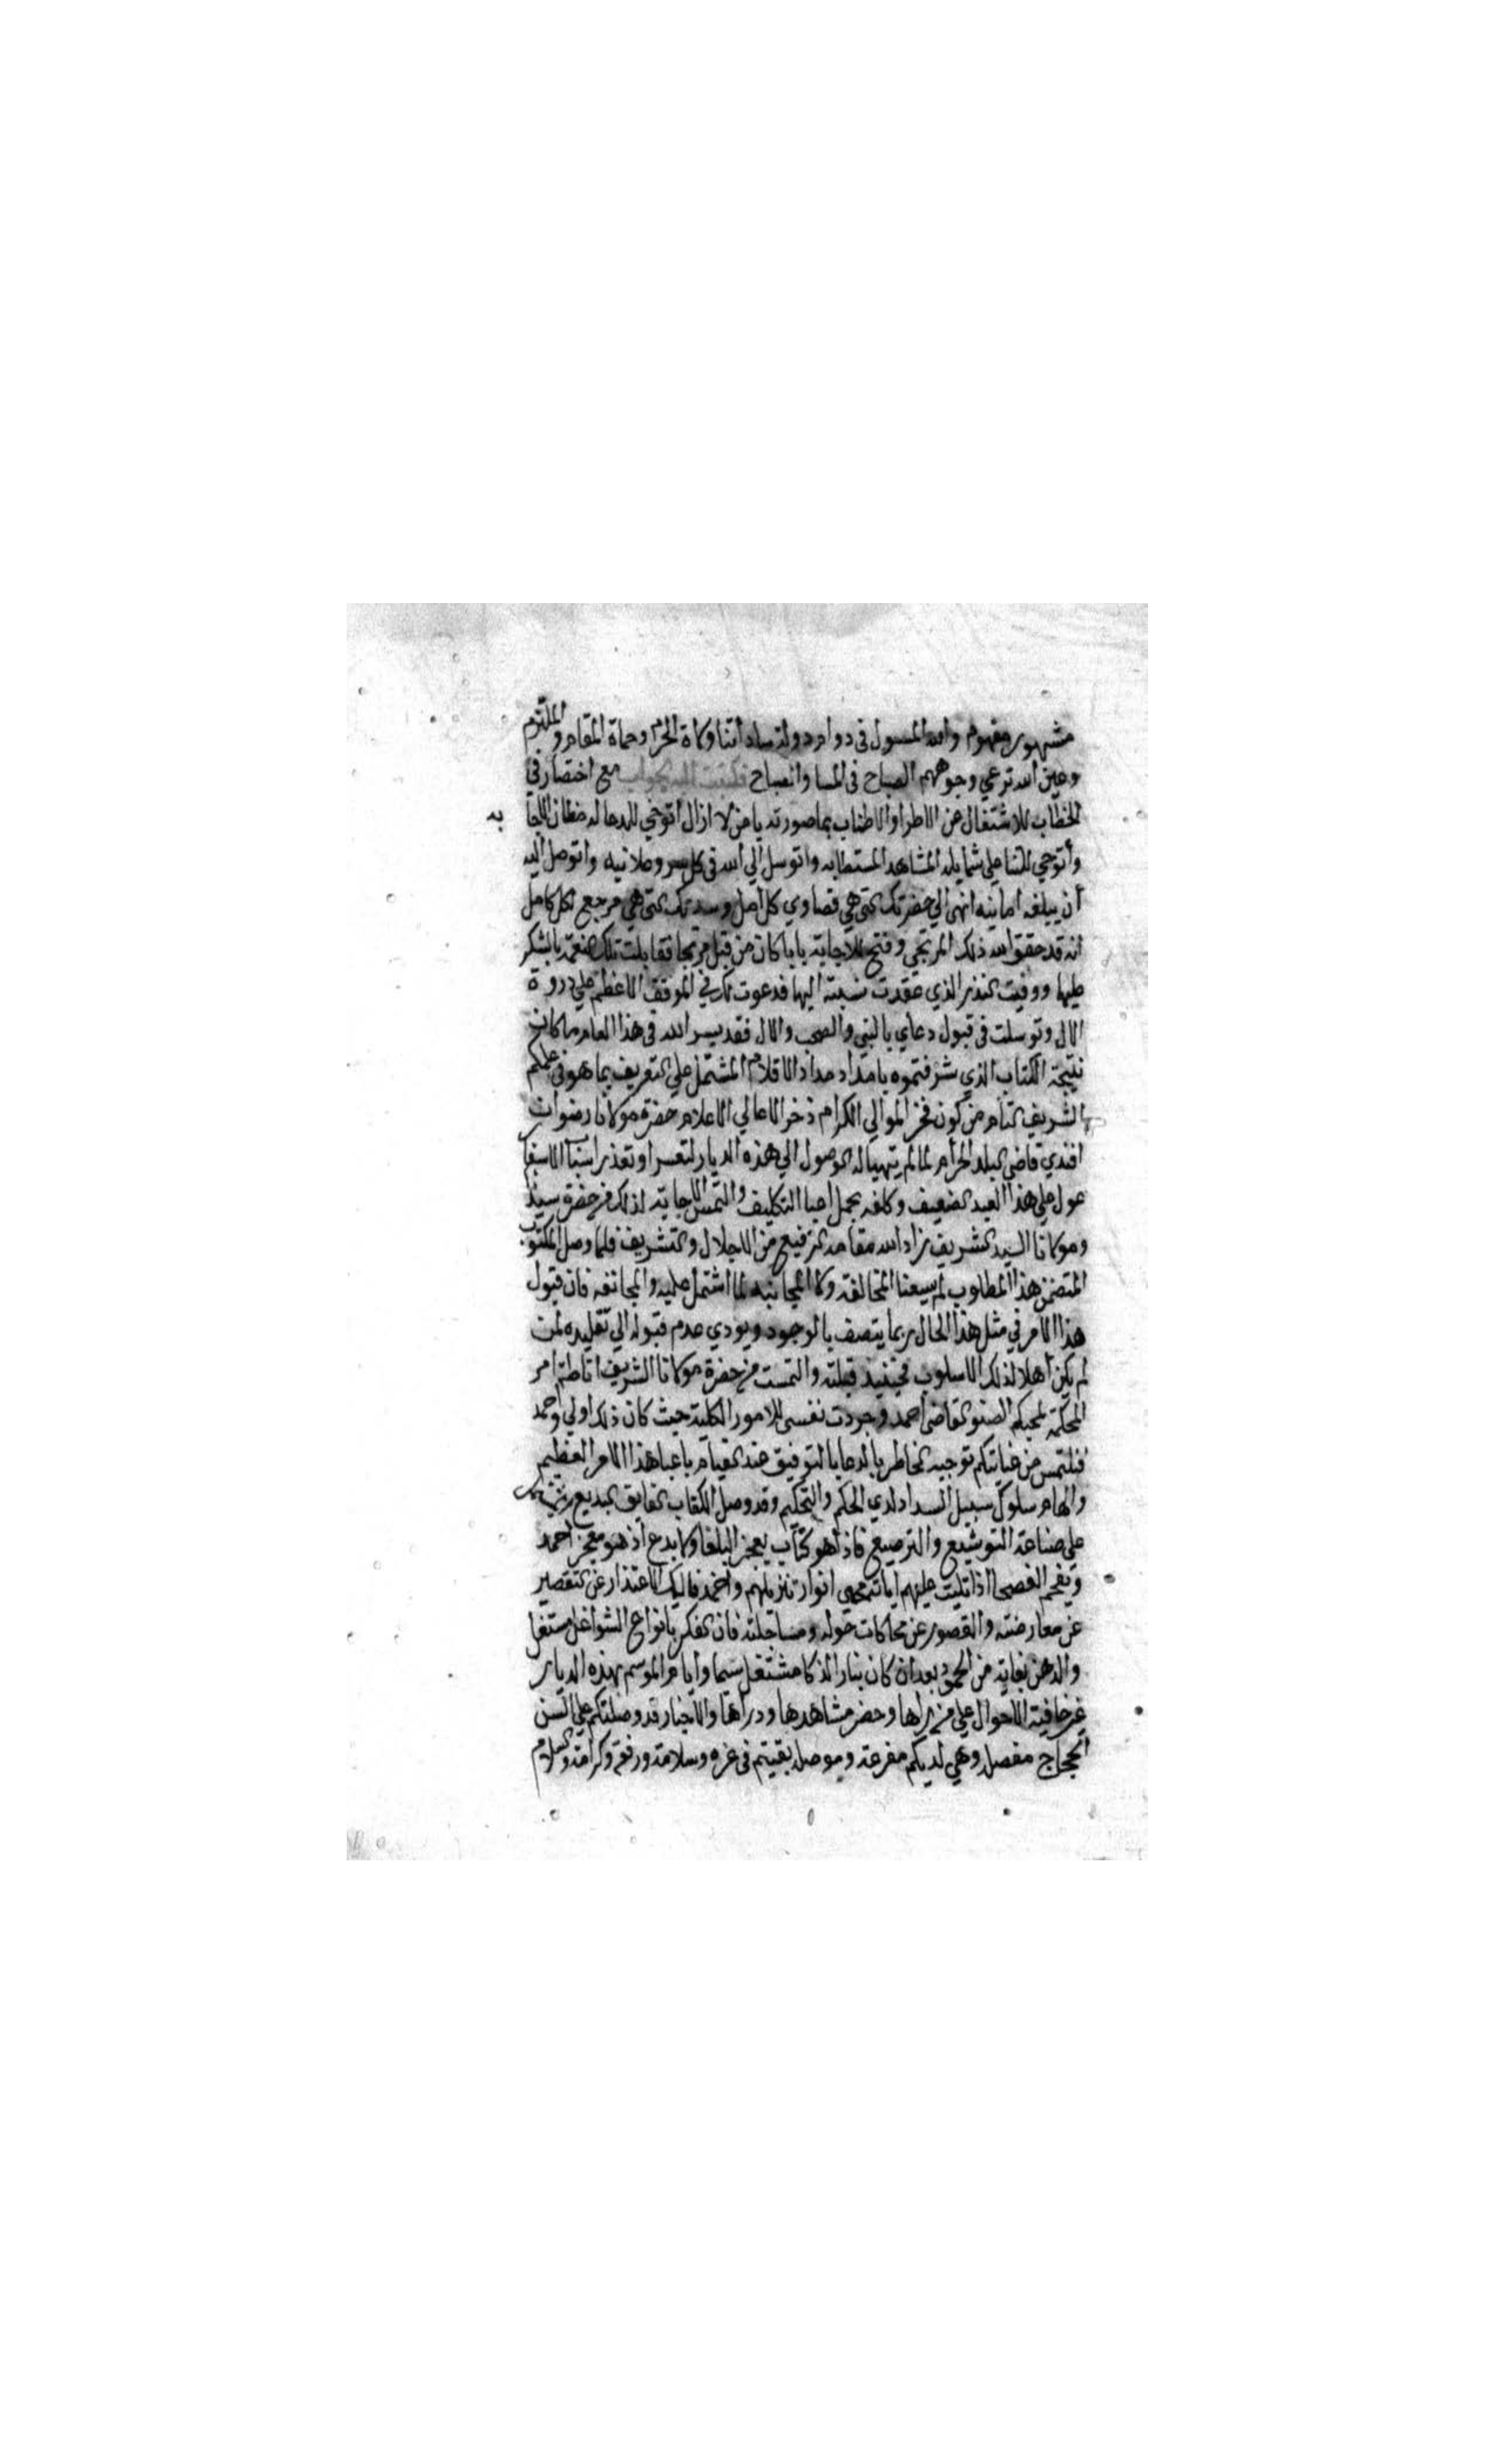 مشهور مفهوم والله المسول فى دوام دولة ساداتنا ولاة الحرم وحماة المقام والملتزم
وعين الله ترعي وجوههم الصباح فى المسا والصباح فكتبت اليه الجواب مع اختصار في
الخطاب للاشتغال عن الاطرا والاطناب بما صورته يا من لا ازال أتوخي للدعا له مظان الاجا به
وأتوخي للثنا علي شمايله المشاهد المستطابه واتوسل الي الله فى كل سر وعلانيه واتوصل اليه
أن يبلغه امانيه انهي الي حضرتك التي هي قصاوي كل أمل وسدتك التي هي مرجع كل كامل
انه قد حقق الله ذلك المرتجي وفتح للاجابة بابا كان من قبل مرتجا فقابلت تلك النعمة بالشكر
عليها ووفيت النذر الذي عقدت نسبته اليها فدعوت لك في الموقف الاعظم علي ذروة
الال وتوسلت فى قبول دعاي بالنبي والصحب والال فقد يسر الله فى هذا العام ما كان
نتيجة الكتاب الذي شرفتموه بامداد مداد الاقلام المشتمل علي التعريف بما هو في علمكم
الشريف التام من كون فخر الموالي الكرام ذخر الاعالي الاعلام حضرة مولانا رضوان
افندي قاضي البلد الحرام لما لم يتهيا له الوصول الي هذه الديار لتعسر او تعذر اسباب الاسفا
عول علي هذا العبد الضعيف وكلفه بحمل اعبا التكليف والتمس الاجابة لذلك من حضرة سيدنا
ومولانا السيد الشريف زاد الله مقامه الرفيع من الاجلال والتشريف فلما وصل المكتوب
المتضمن هذا المطلوب لم يسعنا المخالفة ولا المجانبه لما اشتمل عليه والمجانفه فان قبول
هذا الامر في مثل هذا الحال ربما يتصف بالوجوب ويودي عدم قبوله الي تقليده لمن
لم يكن أهلا لذلك الاسلوب فحينيد قبلته والتمست من حضرة مولانا الشريف اناطة امر
المحكمة لمحبكم الصنو القاضي أحمد وجردت نفسي للامور الكلية حيث كان ذلك اولي واحمد
فنلتمس من عنايتكم توجيه الخاطر بالدعا بالتوفيق عند القيام باعبا هذا الامر العظيم
والهام سلوك سبيل السداد لدي الحكم والتحكيم وقد وصل الكتاب الفايق البديع
علي صناعة التوشيع والترصيع فاذا هو كتاب يعجز البلغا ولا بدع اذ هو معجز أحمد
ويفحم الفصحا اذا تليت عليهم اياته محي انوار تنزيلهم وأخمد فاليك الاعتذار عن التقصير
عن معارضته والقصور عن محاكات حوله ومساجلته فان الفكر بانواع الشواغل مشتغل
والذهن بغاية من الخمود بعد ان كان بنار الذكا مشتعل سيما وايام الموسم بهذه الديار
غير خافية الاحوال علي من يراها وحضر مشاهدها ودراها والاخبار قد وصلتكم علي السن
الحجاج مفصله وهي لديكم مفرعة وموصله بقيتم فى عزه وسلامة ورفعة وكرامة والسلام